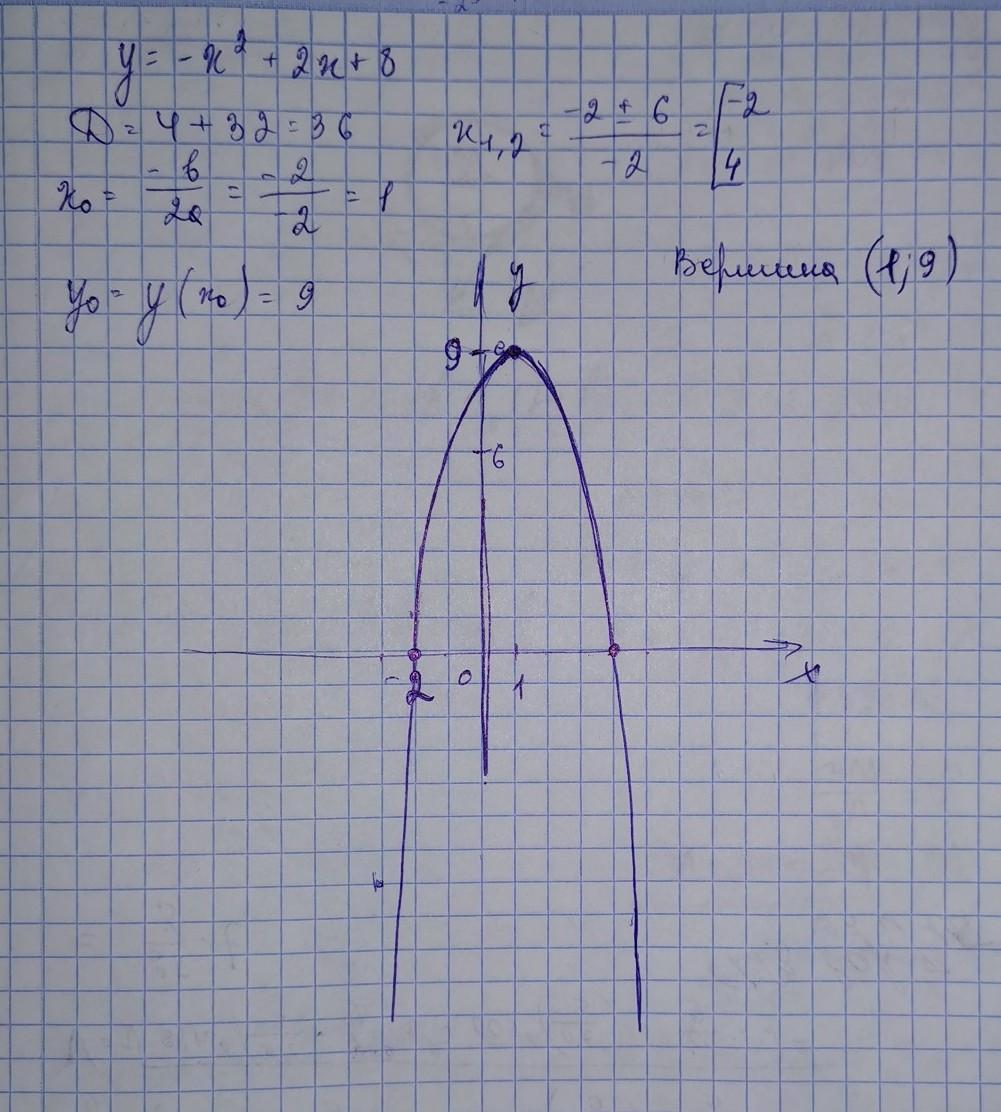 y = -x² + 2x + 8
D = 4 + 32 = 36
x₁,₂ = (-2 ± 6)/(-2) = [-2
4
x₀ = -b/2a = -2/-2 = 1
y₀ = y(x₀) = 9
Вершина (1; 9)
y
9
6
-2 0 1
x